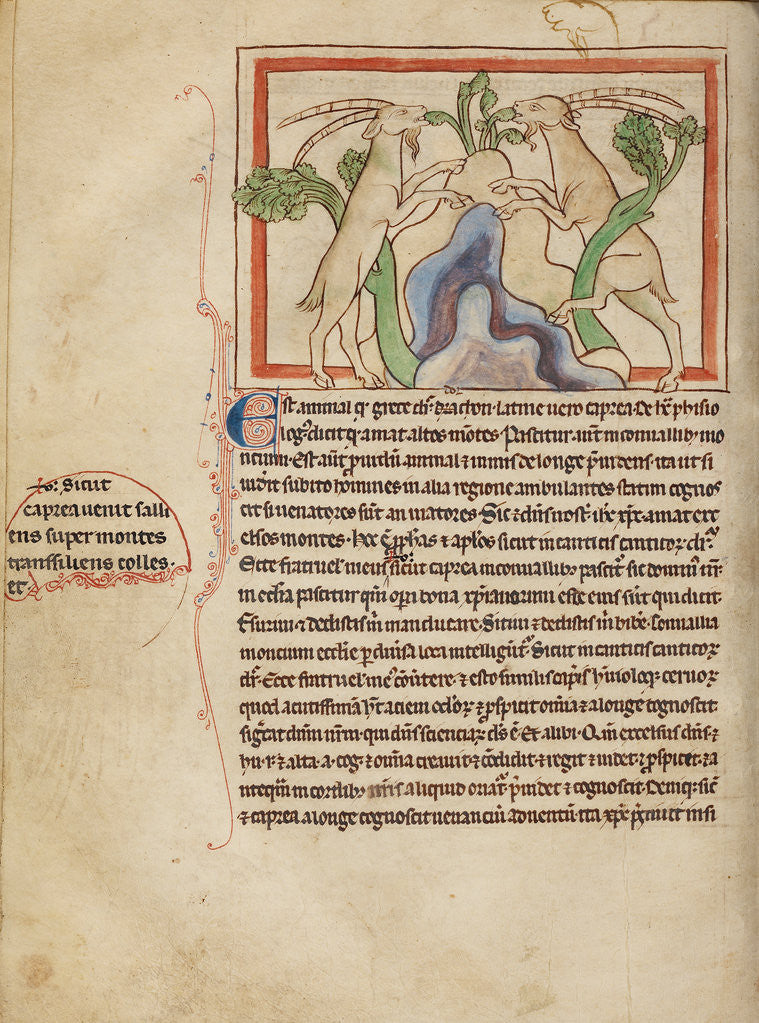 Est animal qr grece dr̄ drachon. latine uero caprea. de hͨ phisio
log dicit qr amat altos mōtes. Pascitur aut̄ in conuallibȝ mo
ncium. Est aut̄ animal ⁊ in inmis de longe puidens. ita ut si
uidit subito homines in alia regione ambulantes statim cognos
cit si uenatores sūt an uiatores. Sic ⁊ dn̄s nost ihc xp̄c amat exc
elsos montes. hoc ē pphas ⁊ apl̄os sicut in canticis canticoꝝ dr̄.
Ecce fratruel meus sicut caprea in conuallibȝ pascit sic dominꝰ
in ecclīa pascitur qm̄ opa bona xp̄ianorum esce eius sūt qui dicit.
Esuriui ⁊ dedistis m̄ manducare. Sitiui ⁊ dedistis m̄ bibe. Conuallia
moncium ecclīe p diuisa loca intelligūt. Sicut in canticis canticoꝝ
dr̄. Ecce fratruel meꝰ cōuitere. ⁊ esto similis hinuloqȝ ceruoꝝ
quod acutissimā ht aciem ocloꝝ ⁊ pspicit omīa ⁊ a longe cognoscit.
sigcat dnm̄ nrm̄. qui dn̄s scienciaꝝ ds ē. Et alibi. Qm̄ excelsus dn̄s. ⁊
hu. r. ⁊ alta. a. cog. ⁊ omīa creauit ⁊ cōdidit ⁊ regit ⁊ uidet ⁊ pspicet. ⁊ a
nteqm̄ in cordibȝ nr̄is aliquid puidet ⁊ cognoscit. Demiqȝ sic
⁊ caprea a longe cognoscit uenanciū aduentū. ita xp̄c insi
sicut
caprea uenit salli
ens super montes
transsiliens colles.
et